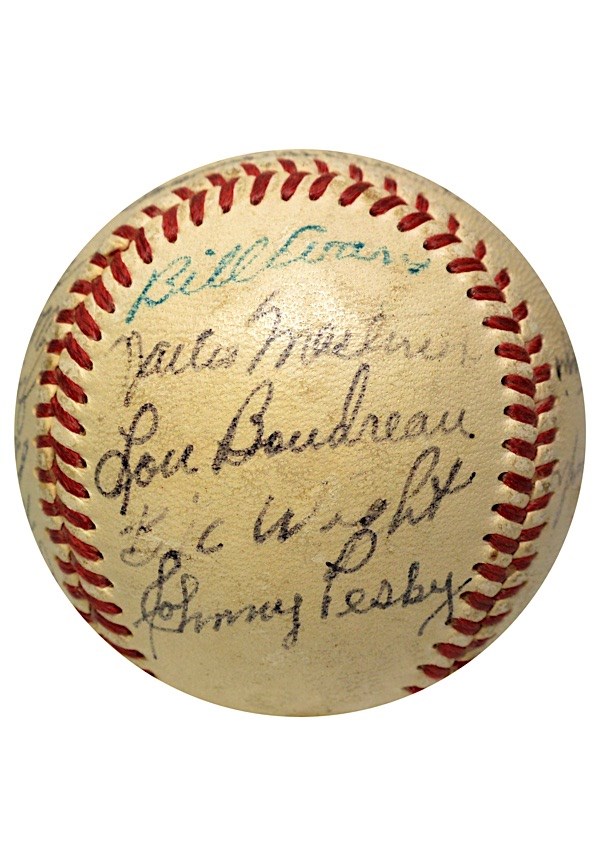 Bill Evans
Walter Masterson
Lou Boudreau
Wight
Johnny Pesky